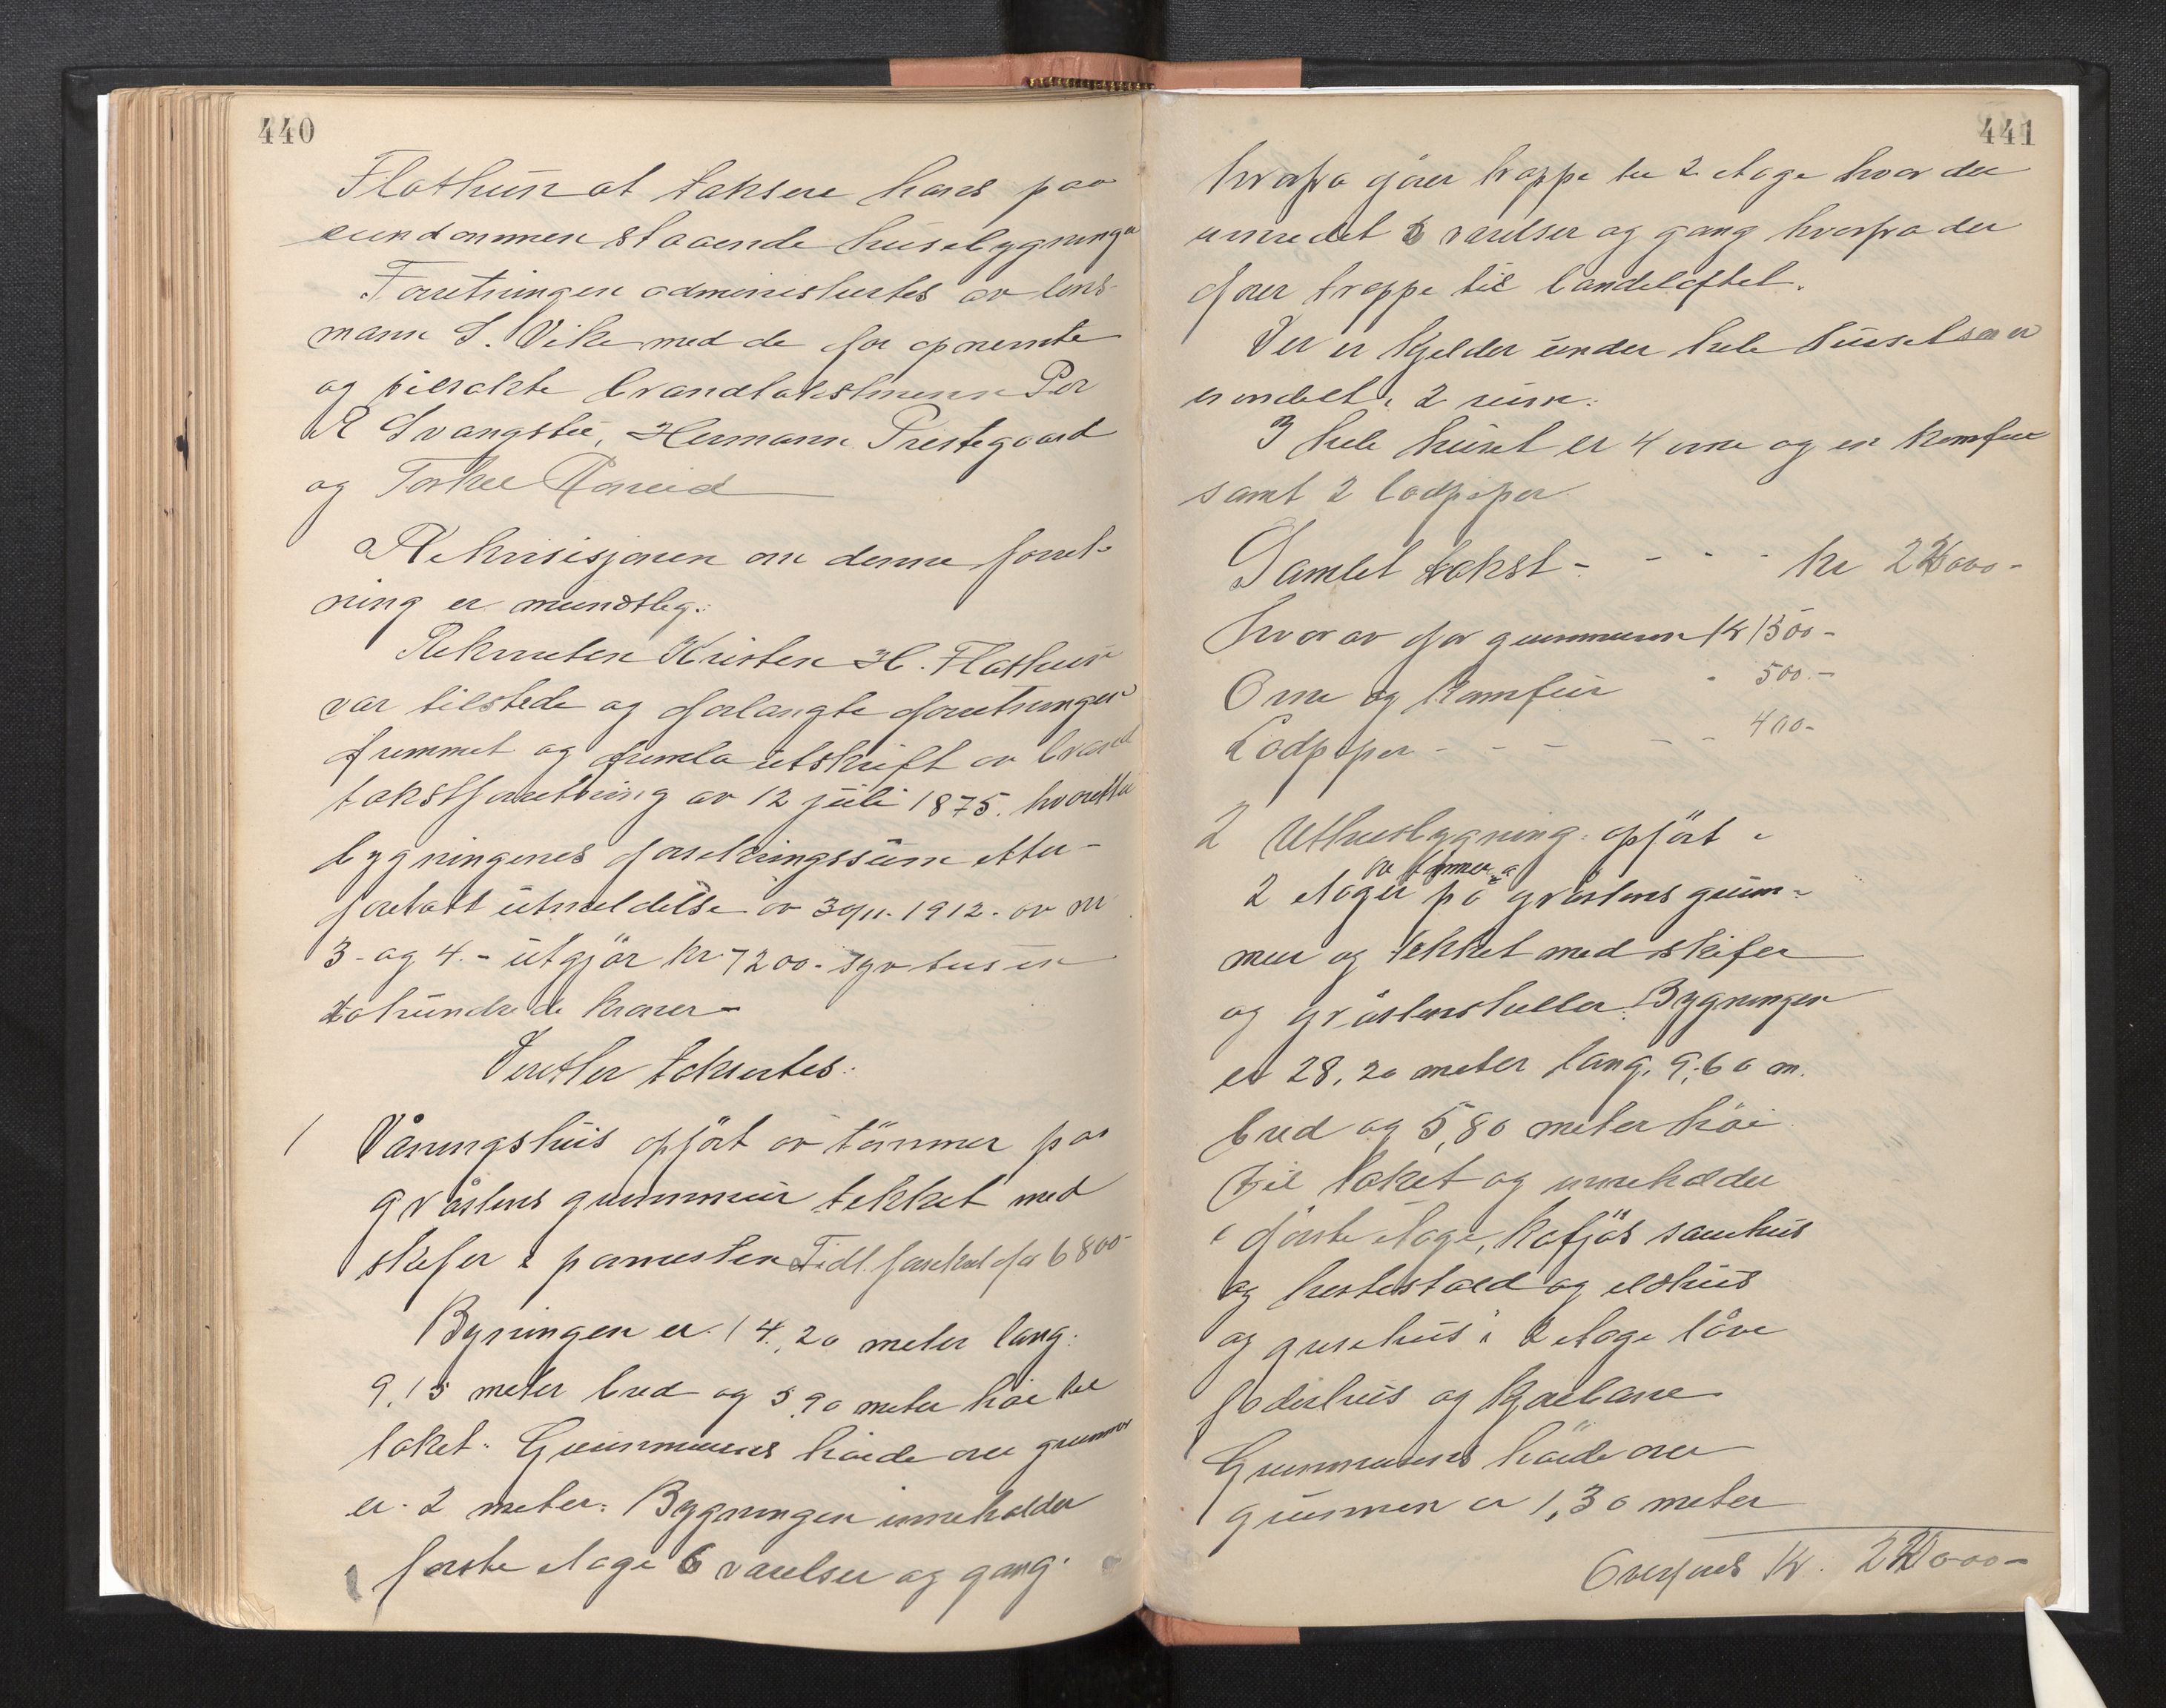 440
Flathus at taksere hans paa
eiendommen staaende husebygninge
Forretningen administrertes av lens-
mann S. Vike med de for opnevnte
og tilsakte brandtakstmenn Per
A Svangstu, Hermann Prestegaard
og Torkel
Rekvisisjonen om denne forret-
ning er mundtleg.
Rekvirenten Kristen H. Flathus
var tilstede og forlangte forretningen
fremmet og fremla utskrift av brand
takstforretning av 12 juli 1875. hvorefter
bygningenes forsekringssum etter
foretatt utmeldelse av 30/11-1912. av nr
3-og 4.- utgjør kr 7200.- syv tusen
tohundrede kroner-
Derefter taksertes:
1 Våningshus opført av tømmer paa
gråstens grunnmur tekket med
skifer & pannesten Tidl. forsekret for 6800-
Byningen er 14,20 meter lang.
9,15 meter bred og 5,90 meter høi til
taket. Grunnmurens høide over grunnen
er 2 meter. Bygningen inneholder
i første etage 6 værelser og gang.
441
hvorfra fører trappe til 2 etage hvor der
innredet 5 værelser og gang hvorfra der
fører trappe til landeloftet.
Der er kjelder under hele huset som er
inndelt i 2 rum.
I hele huset er 4 ovne og en komfur
samt 2 lodpiper
Samlet takst - - - - kr 22000-
hvorav for grunnmuren kr 1500-
Ovne og komfur " 500.-
Lodpiper - - - - - 400-
2 Uthusbygning opført i
av tømmer
2 etager på gråstens grunn-
mur og tekket med skifer
og gråstensheller. Bygningen
er 28,20 meter lang, 9,60 m.
bred og 5,80 meter høi
til taket og inneholder
i første etage, kufjøs sauehus
og hestestald og eldhus
og grisehus i 2 etage låve
foderhus og kjørebane
Grunnmurens høide over
grunnen er 1,30 meter
Overføres kr. 22000-